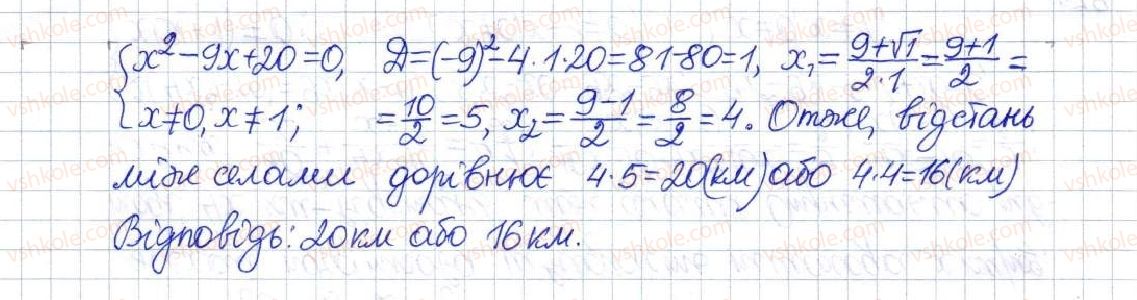 {x²-9x+20=0, D=(-9)²-4·1·20=81-80=1, x₁=(9+√1)/(2·1)=(9+1)/2=
{x≠0, x≠1; =10/2=5, x₂=(9-1)/2=8/2=4. Отже, відстань
між селами дорівнює 4·5=20(км) або 4·4=16(км)
Відповідь: 20км або 16км.